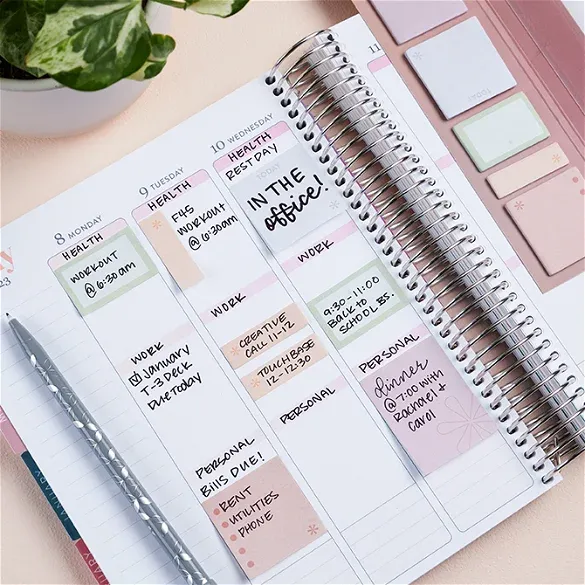 8 MONDAY
HEALTH
WORKOUT
@ 6:30am
WORK
January
T-3 Deck
Due Today
PERSONAL
Bills Due!
RENT
UTILITIES
PHONE
9 TUESDAY
HEALTH
F45
WORKOUT
@ 6:30am
WORK
CREATIVE
CALL 11-12
TOUCH BASE
12-12:30
PERSONAL
10 WEDNESDAY
HEALTH
REST DAY
TODAY
IN THE
office!
WORK
9:30-11:00
Back to
SCHOOL BS.
PERSONAL
dinner
@ 7:00 with
Rachael &
Carol
11
23